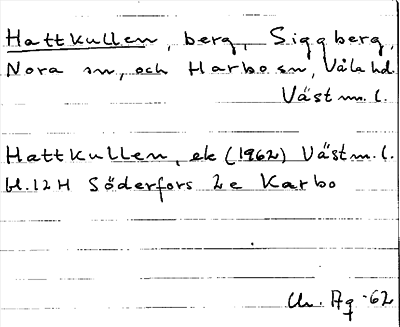 Hattkullen, berg, Siggberg,
Nora sn, och Harbo sn, Våla hd
Västm. l.
Hattkullen, ek (1962) Västm. l.
bl. 12 H Söderfors 2 e Karbo
Ag -62